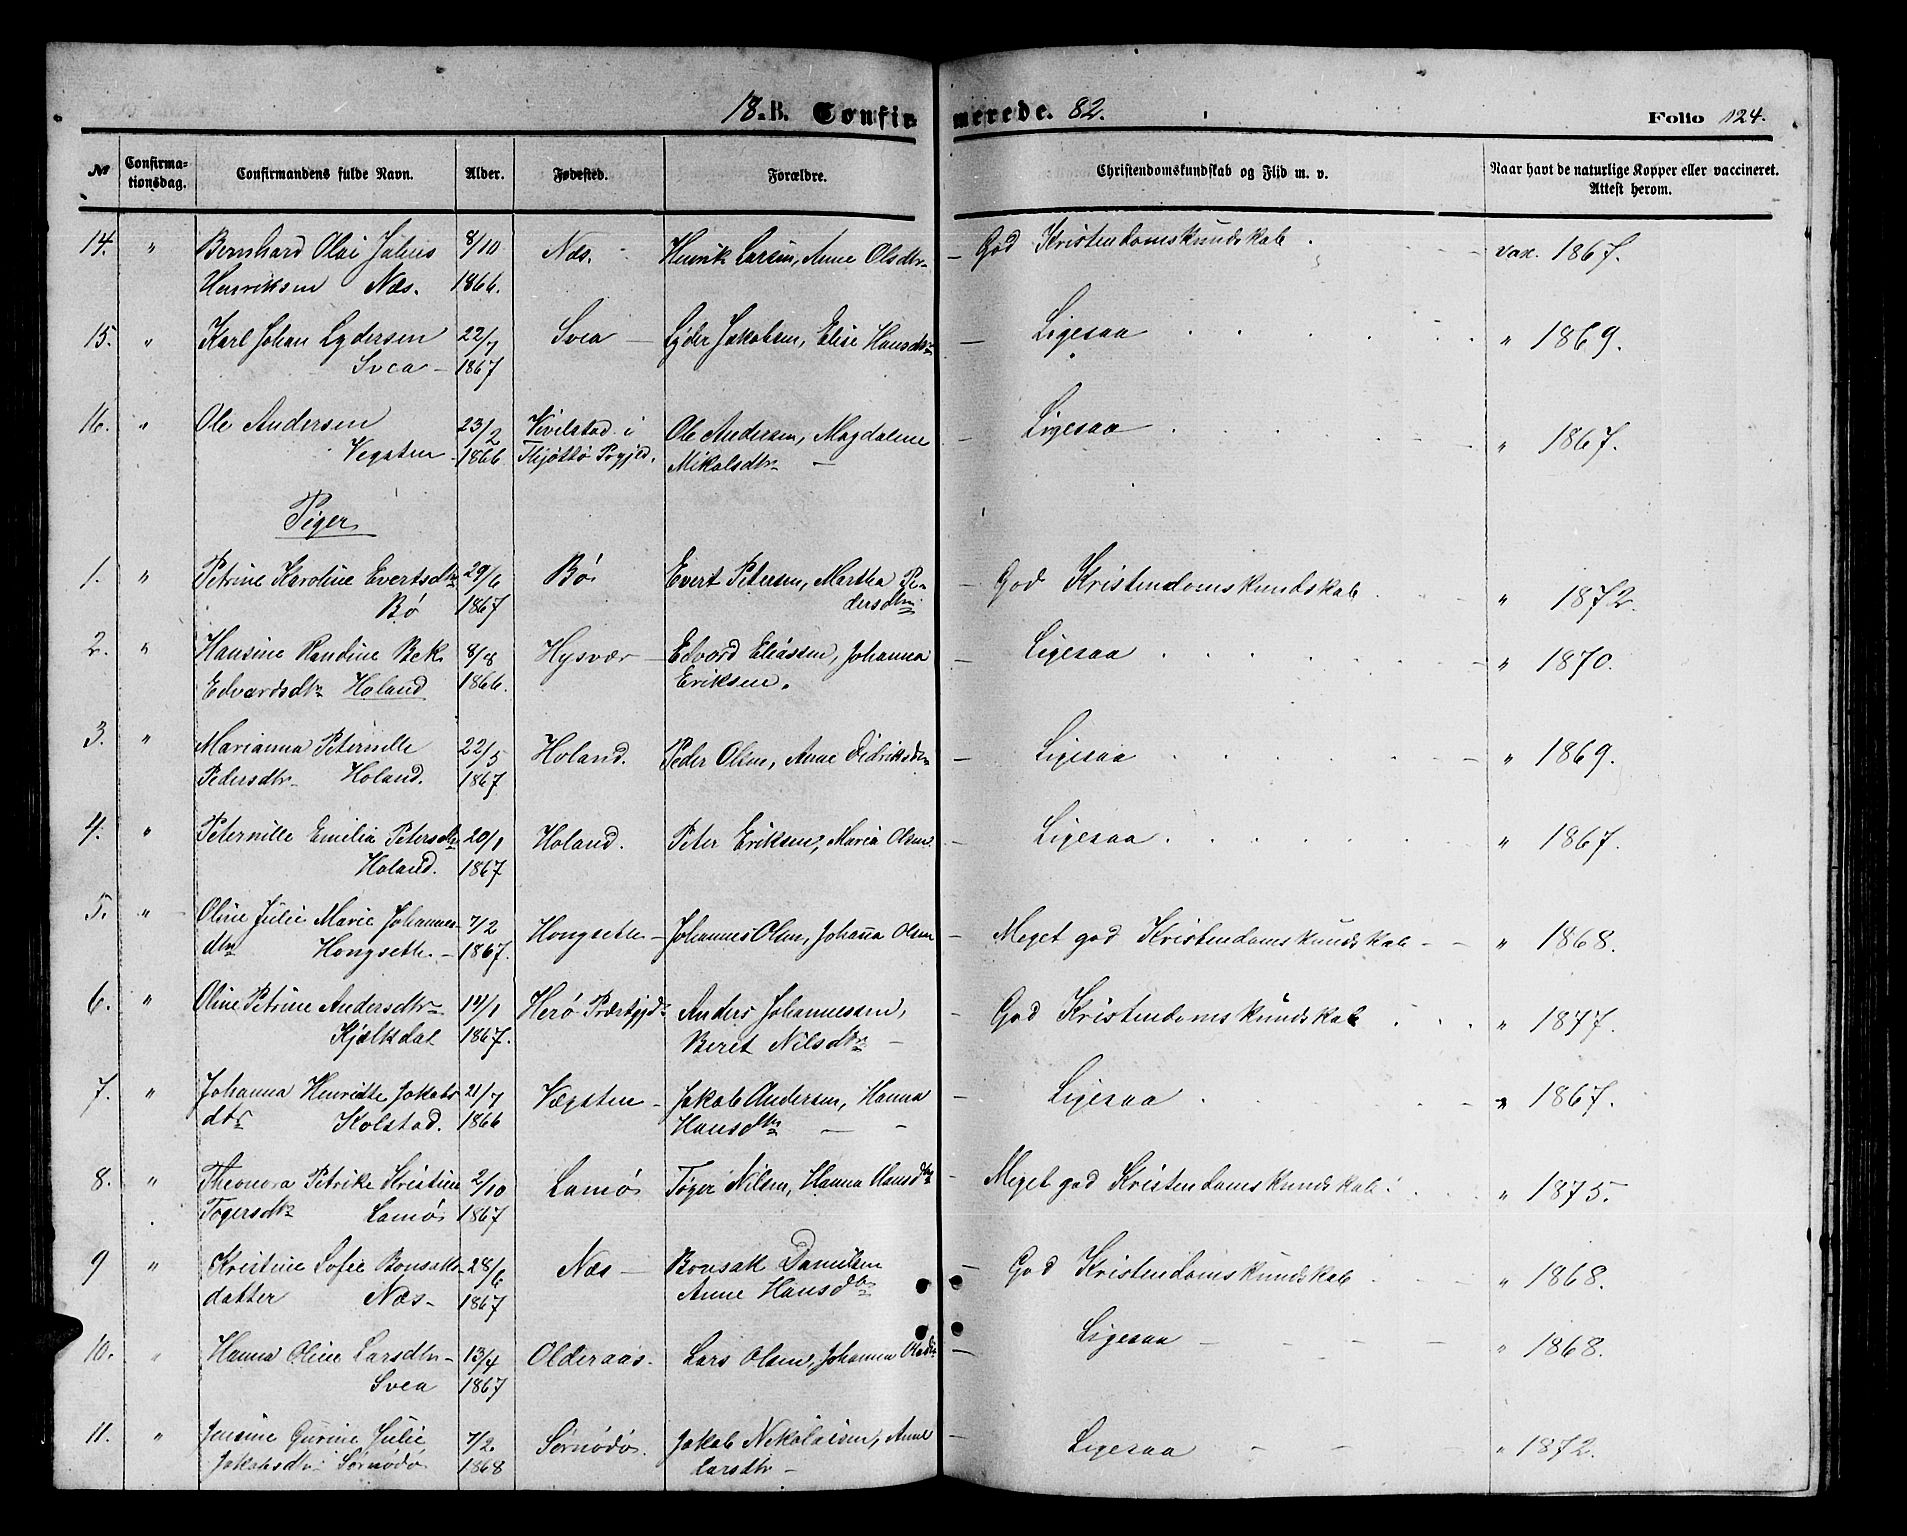 18.B. Confirmerede. 82. Folio 124.
№ Confirmationsdag. Confirmandens fulde Navn. Alder. Fødested. Forældre. Christendomskundskab og Flid m. v. Naar havt de naturlige Kopper eller vaccineret. Attest herom.
14. " Bernhard Olai Julius 8/10 Næs. Henrik Larsen, Anne Olsdtr God Kristendomskundskab. vax. 1867.
Henriksen Næs. 1866.
15. " Karl Johan Lydersen 22/7 Svea Lyder Jakobsen, Elise Hansdtr Ligesaa " 1869.
Svea 1867
16. " Ole Andersen 23/2 Vivilstad i Ole Andersen, Magdalene Ligesaa " 1867.
Vegsten 1866 Thjøttø Prgjld. Mikalsdtr
Piger
1. " Petrine Karoline Evertsdtr 29/6 Bø Evert Petersen, Martha Pe- God Kristendomskundskab " 1872.
Bø 1867 dersdtr
2. " Hansine Randine Bek 8/8 Hysvær Edvard Eliassen, Johanna Ligesaa " 1870.
Edvardsdtr Holand 1866. Eriksen.
3. " Marianna Peternille 22/5 Holand. Peder Olsen, Anne Didriksdtr Ligesaa " 1869.
Pedersdtr Holand. 1867.
4. " Peternille Emilia Petersdtr 20/1 Holand. Peter Eriksen, Maria Olsen Ligesaa " 1867.
Holand. 1867
5. " Oline Julie Marie Johannes- 7/2 Hongseth Johannes Olsen, Johanna Olsen Meget god Kristendomskundskab " 1868.
dtr Hongseth. 1867.
6. " Oline Petrine Andersdtr 14/1 Herø Præstgjd Anders Johannessen, God Kristendomskundskab " 1877.
Kjælkdal 1867. Beret Nilsdtr
7. " Johanna Henridte Jakobs 21/7 Vægsten Jakob Andersen, Hanna Ligesaa " 1867.
dtr Kolstad. 1866 Hansdtr
8. " Theonora Petrike Kristine 2/10 Lamø Tøger Nilsen, Hanna Hansdtr Meget god Kristendomskundskab. " 1875.
Tøgersdtr Lamø 1867
9 " Kristine Sofie Bonsak- 28/6 Næs Bonsak Danilsen God Kristendomskundskab " 1868.
datter Næs 1867 Anne Hansdtr
10. " Hanna Oline Larsdtr 13/4 Olderaas. Lars Olsen, Johanna Olsdtr Ligesaa " 1868.
Svea 1867
11. " Jensine Gurine Julie 7/2. Sørnødø. Jakob Nikolaisen, Anne Ligesaa " 1872.
Jakobsdtr Sørnødø 1868 Larsdtr